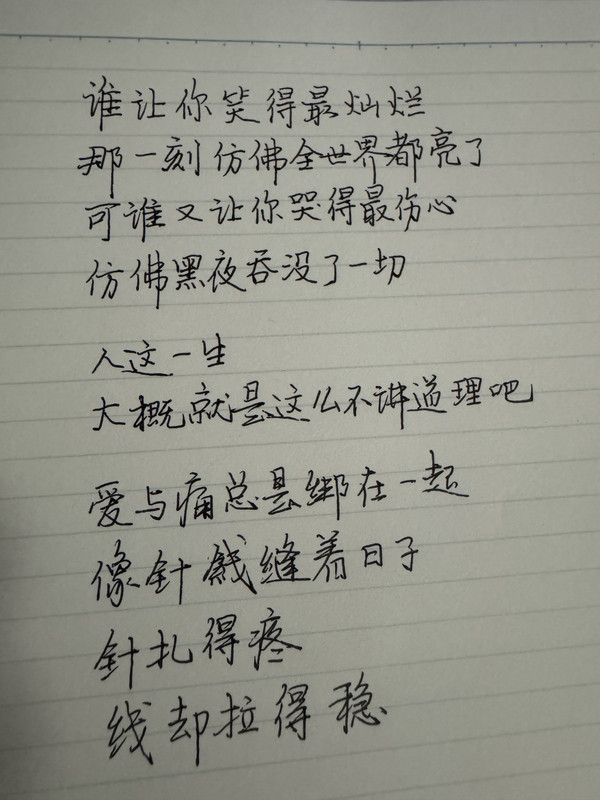 谁让你笑得最灿烂
那一刻仿佛全世界都亮了
可谁又让你哭得最伤心
仿佛黑夜吞没了一切
人这一生
大概就是这么不讲道理吧
爱与痛总是绑在一起
像针线缝着日子
针扎得疼
线却拉得稳